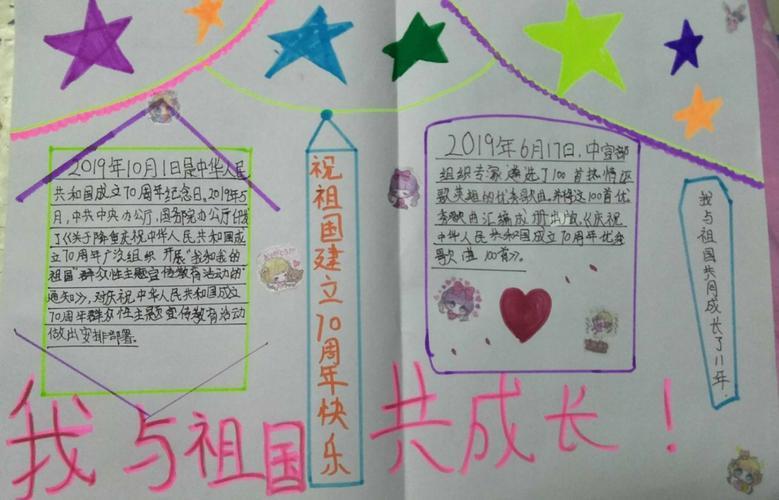 2019年10月1日是中华人民
共和国成立70周年纪念日。2019年5
月，中共中央办公厅、国务院办公厅印发
了《关于隆重庆祝中华人民共和国成
立70周年广泛组织开展“我和我的
祖国”群众性主题宣传教育活动的
通知》，对庆祝中华人民共和国成立
70周年群众性主题宣传教育活动
做出安排部署。
祝祖国建立70周年快乐
2019年6月17日，中宣部
组织专家遴选了100首热情讴
歌英雄的优秀歌曲，并将这100首优
秀歌曲汇编成册出版《庆祝
中华人民共和国成立70周年优秀
歌曲100首》。
我与祖国共同成长了11年.
我与祖国共成长！